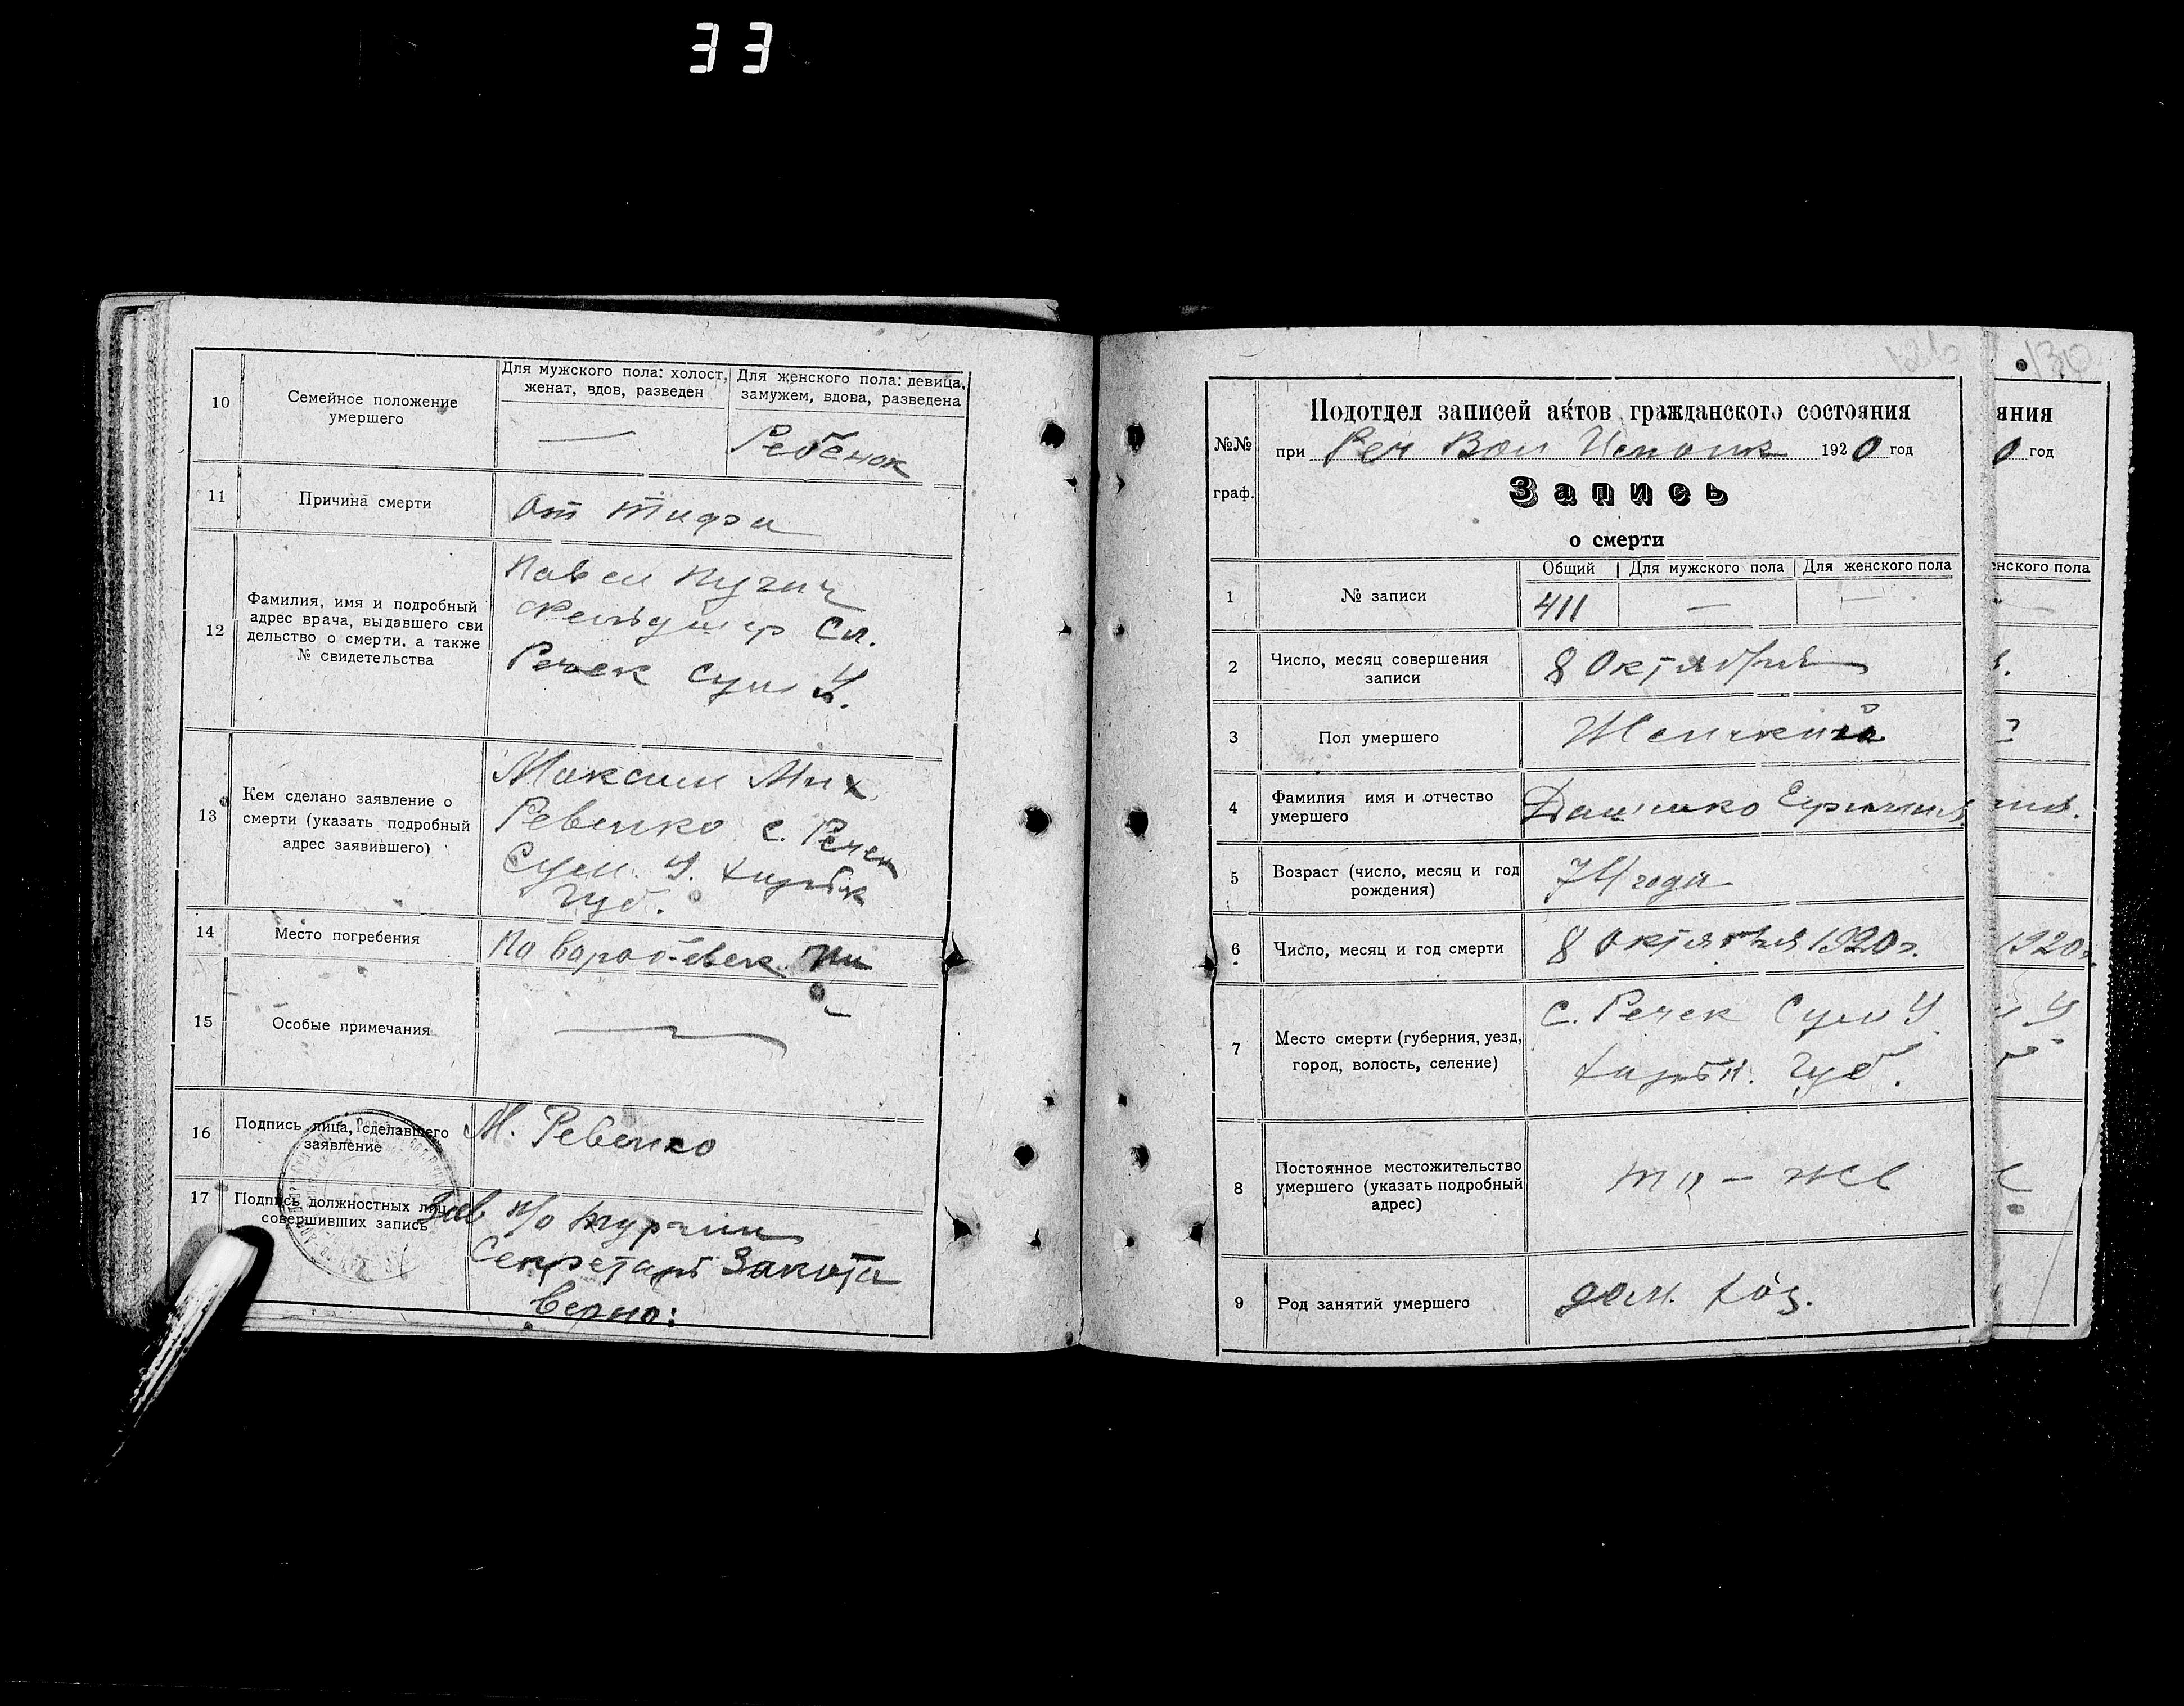 33
10
Семейное положение
умершего
Для мужского пола: холост,
женат, вдов, разведен
Для женского пола: девица,
замужем, вдова, разведена
—
Ребенок
11
Причина смерти
От тифа
12
Фамилия, имя и подробный
адрес врача, выдавшего сви
дельство о смерти, а также
№ свидетельства
Павел
Фельдшер Сл.
Речек Сум У.
13
Кем сделано заявление о
смерти (указать подробный
адрес заявившего)
Максим Мих
Ревенко с. Речек
Сум. У. Харьк
Губ.
14
Место погребения
На
15
Особые примечания
—
16
Подпись лица, сделавшего
заявление
М. Ревенко
17
Подпись должностных лиц,
совершивших запись
Зав п/о
Секретарь Закота
Верно:
126
№№
граф.
Подотдел записей актов гражданского состояния
при Реч Вол Исполк 1920 год
Запись
о смерти
1
№ записи
Общий
Для мужского пола
Для женского пола
411
—
—
2
Число, месяц совершения
записи
8 Октября
3
Пол умершего
Женский
4
Фамилия имя и отчество
умершего
5
Возраст (число, месяц и год
рождения)
74 года
6
Число, месяц и год смерти
8 Октября 1920 г.
7
Место смерти (губерния, уезд,
город, волость, селение)
с. Речек Сум У.
Харьк. Губ.
8
Постоянное местожительство
умершего (указать подробный
адрес)
то-же
9
Род занятий умершего
дом. хоз.
130
яния
0 год
нского пола
1920г.